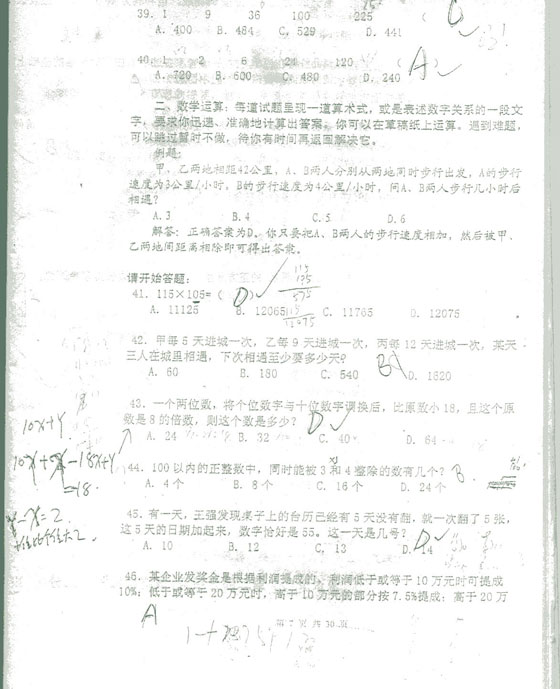 39. 1 9 36 100 225 ( D
A. 400 B. 484 C. 529 D. 441
40. 1 2 6 24 120 ( A )
A. 720 B. 600 C. 480 D. 240
二、数学运算：每道试题呈现一道算术式，或是表述数字关系的一段文
字，要求你迅速、准确地计算出答案。你可以在草稿纸上运算。遇到难题，
可以跳过暂时不做，待你有时间再返回解决它。
例题：
甲、乙两地相距42公里，A、B两人分别从两地同时步行出发，A的步行
速度为3公里/小时，B的步行速度为4公里/小时，问A、B两人步行几小时后
相遇？
A. 3 B. 4 C. 5 D. 6
解答：正确答案为D。你只要把A、B两人的步行速度相加，然后被甲、
乙两地间距离相除即可得出答案。
请开始答题：
41. 115×105=( D )
A. 11125 B. 12065 C. 11765 D. 12075
42. 甲每5天进城一次，乙每9天进城一次，丙每12天进城一次，某天
三人在城里相遇，下次相遇至少要多少天？ B
A. 60 B. 180 C. 540 D. 1620
43. 一个两位数，将个位数字与十位数字调换后，比原数小18，且这个原
数是8的倍数，则这个数是多少？ D
A. 24 B. 32 C. 40 D. 64
10x+y
44. 100以内的正整数中，同时能被3和4整除的数有几个？ B
A. 4个 B. 8个 C. 16个 D. 24个
=18
45. 有一天，王强发现桌子上的台历已经有5天没有翻，就一次翻了5张，
这5天的日期加起来，数字恰好是55。这一天是几号？ D
A. 10 B. 12 C. 13 D. 14
46. 某企业发奖金是根据利润提成的，利润低于或等于10万元时可提成
10%；低于或等于20万元时，高于10万元的部分按7.5%提成；高于20万
A
第 7 页 共 30 页